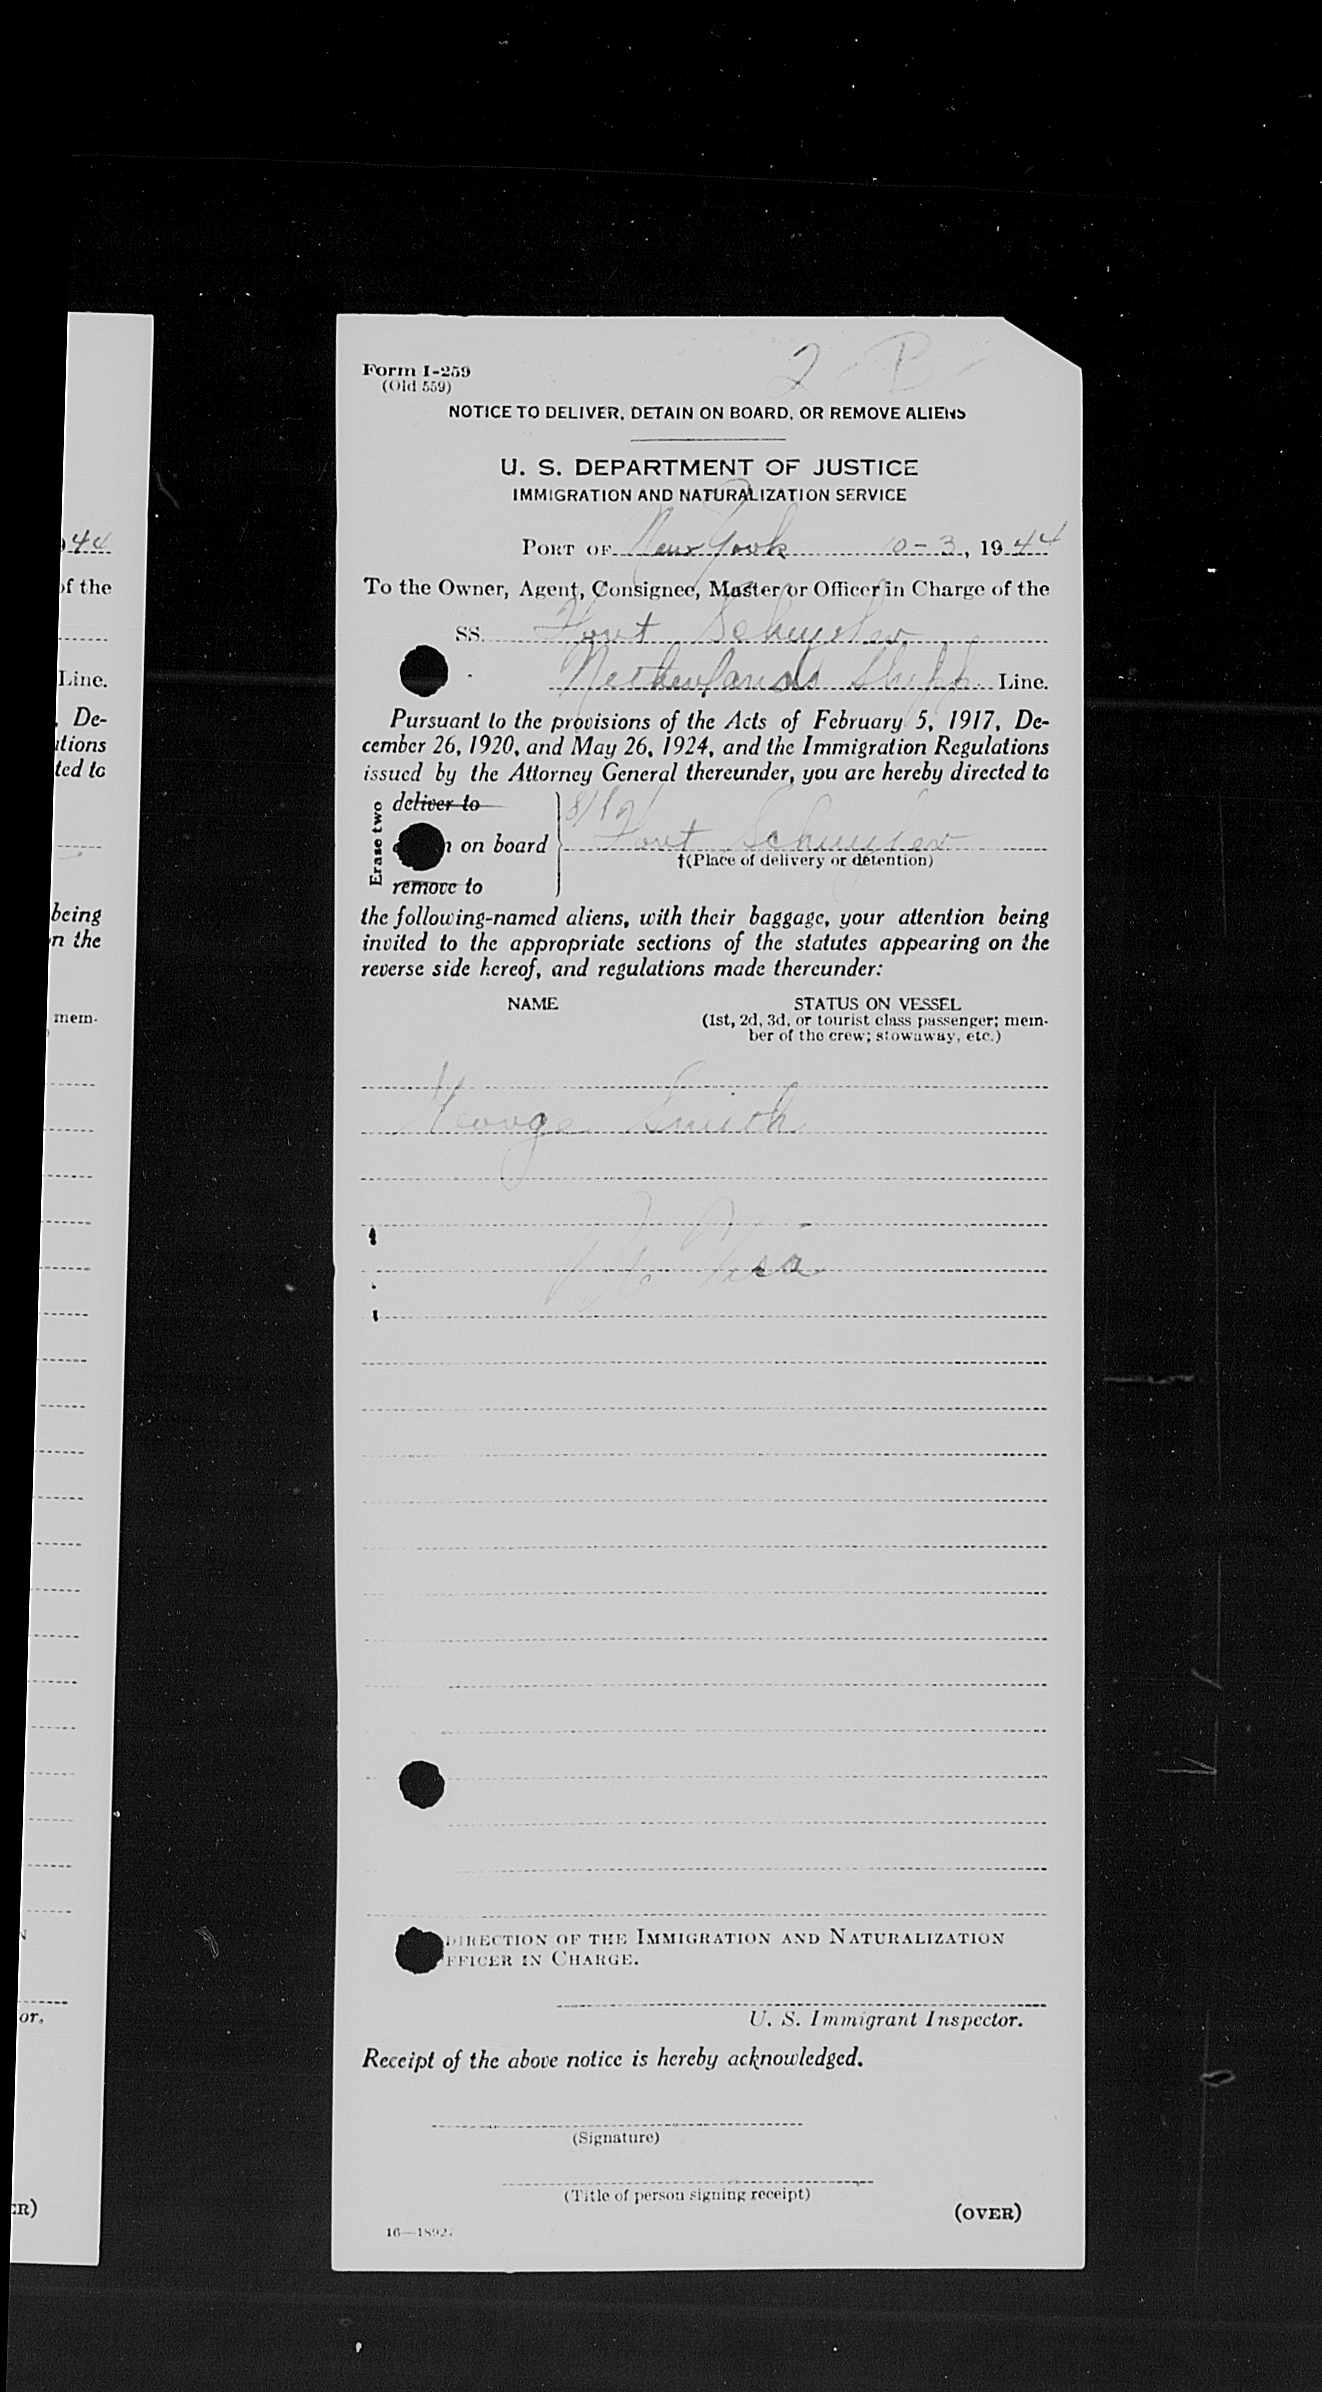 44
of the
Line.
, De-
ations
ted to
being
on the
mem-
or.
ER)
Form I-259
(Old 559)
2 - B -
NOTICE TO DELIVER, DETAIN ON BOARD, OR REMOVE ALIENS
U. S. DEPARTMENT OF JUSTICE
IMMIGRATION AND NATURALIZATION SERVICE
PORT OF New York 10-3, 1944
To the Owner, Agent, Consignee, Master or Officer in Charge of the
SS. Fort Schuyler
Netherlands Shipp. Line.
Pursuant to the provisions of the Acts of February 5, 1917, De-
cember 26, 1920, and May 26, 1924, and the Immigration Regulations
issued by the Attorney General thereunder, you are hereby directed to
Erase two
deliver to
n on board S/S Fort Schuyler
†(Place of delivery or detention)
remove to
the following-named aliens, with their baggage, your attention being
invited to the appropriate sections of the statutes appearing on the
reverse side hereof, and regulations made thereunder:
NAME STATUS ON VESSEL
(1st, 2d, 3d, or tourist class passenger; mem-
ber of the crew; stowaway, etc.)
George Smith
No Visa
DIRECTION OF THE IMMIGRATION AND NATURALIZATION
FFICER IN CHARGE.
U. S. Immigrant Inspector.
Receipt of the above notice is hereby acknowledged.
(Signature)
(Title of person signing receipt)
(OVER)
16—18927